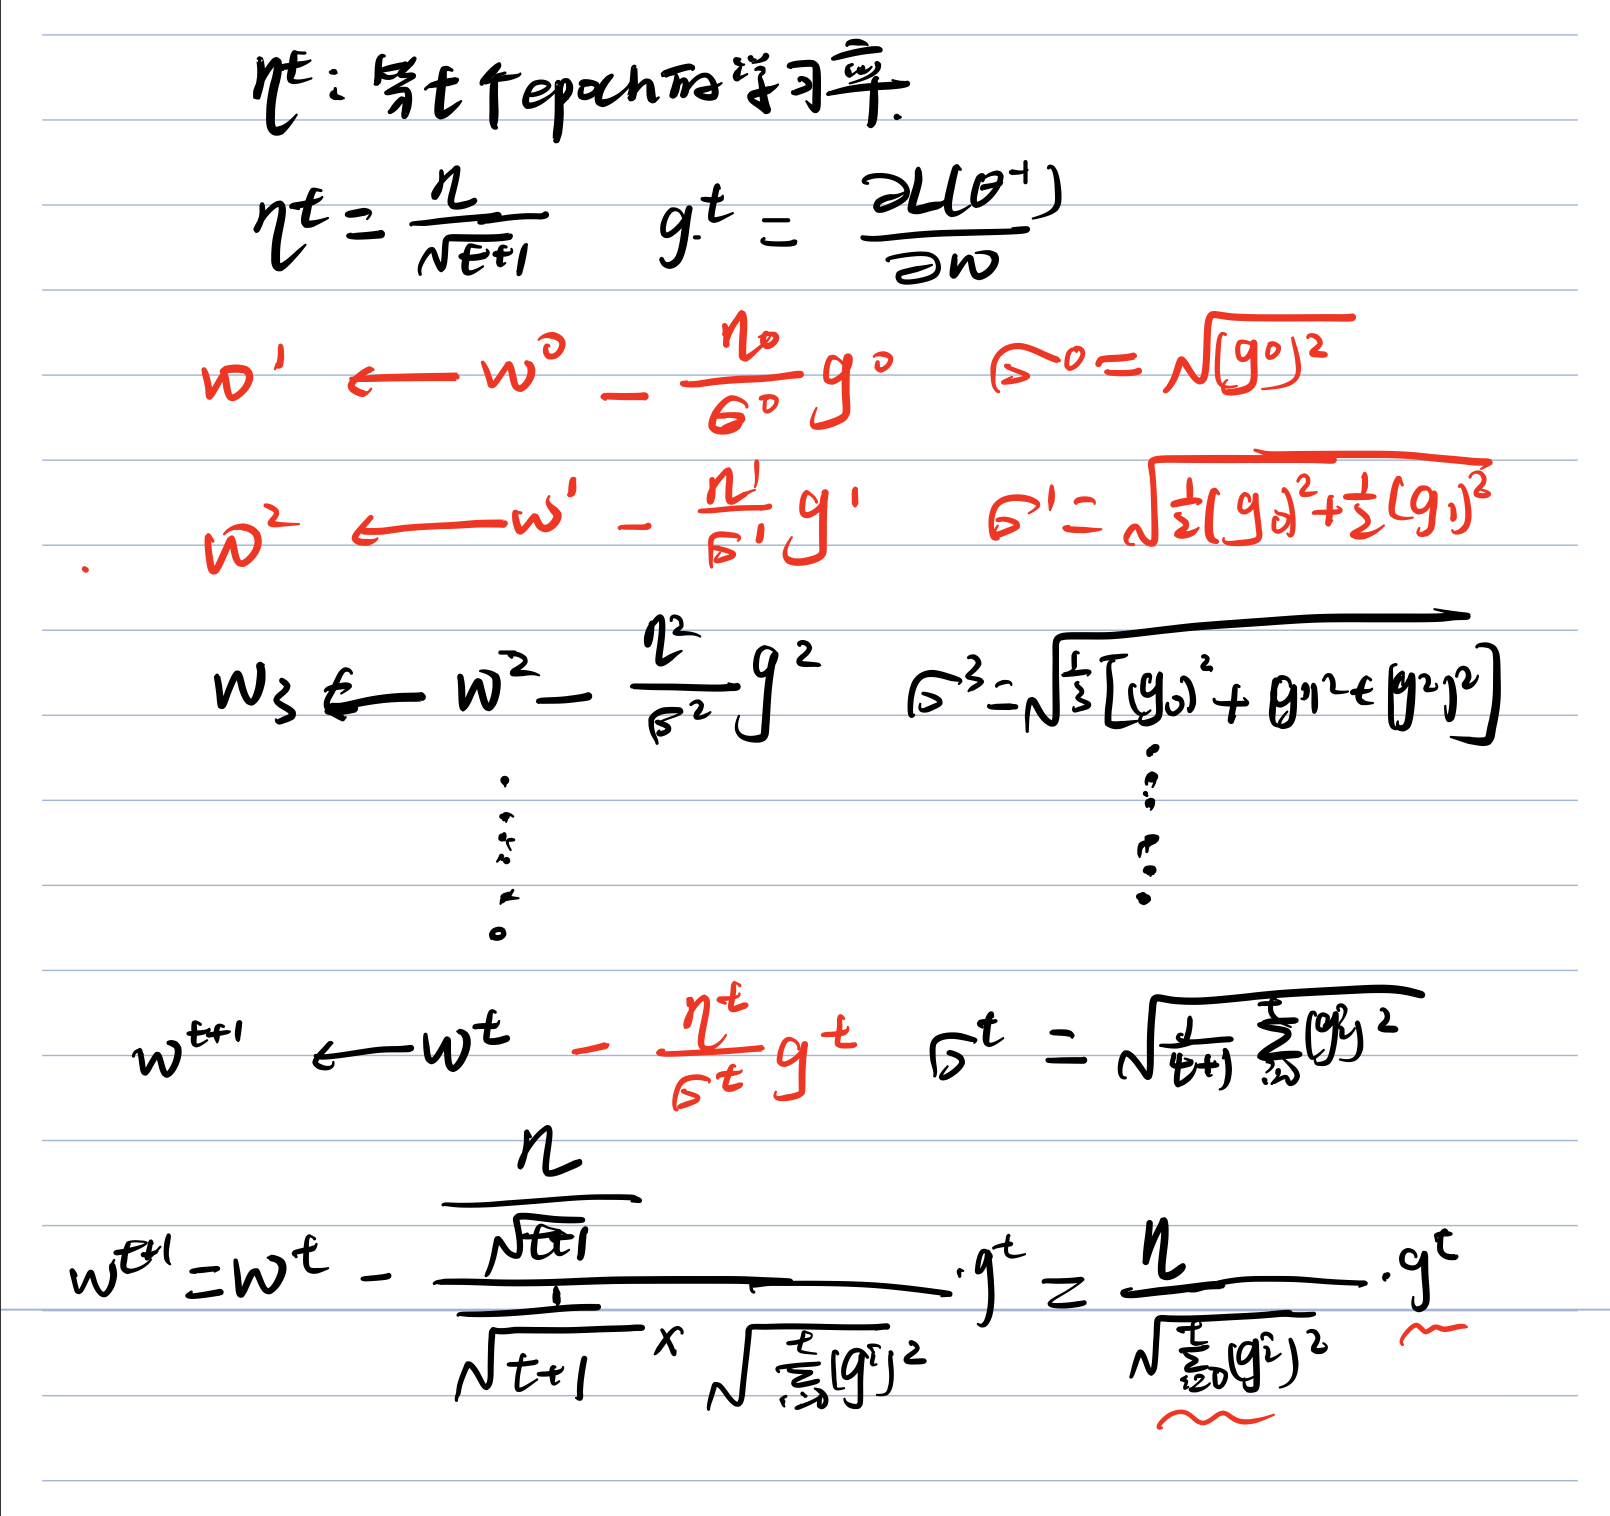 η^t：第t个epoch的学习率.
η^t = η/√(t+1)    g^t = ∂L(θ^t)/∂w
w^1 ← w^0 − (η_0/σ^0) g^0    σ^0 = √((g^0)^2)
w^2 ← w^1 − (η^1/σ^1) g^1    σ^1 = √(1/2 (g_0)^2 + 1/2 (g_1)^2)
w_3 ← w^2 − (η^2/σ^2) g^2    σ^3 = √(1/3 [(g_0)^2 + (g^1)^2 + (g^2)^2])
w^{t+1} ← w^t − (η^t/σ^t) g^t    σ^t = √(1/(t+1) Σ_{i=0}^{t} (g^i)^2)
w^{t+1} = w^t − (η/√(t+1)) / (1/√(t+1) × √(Σ_{i=0}^{t} (g^i)^2)) · g^t = η/√(Σ_{i=0}^{t} (g^i)^2) · g^t